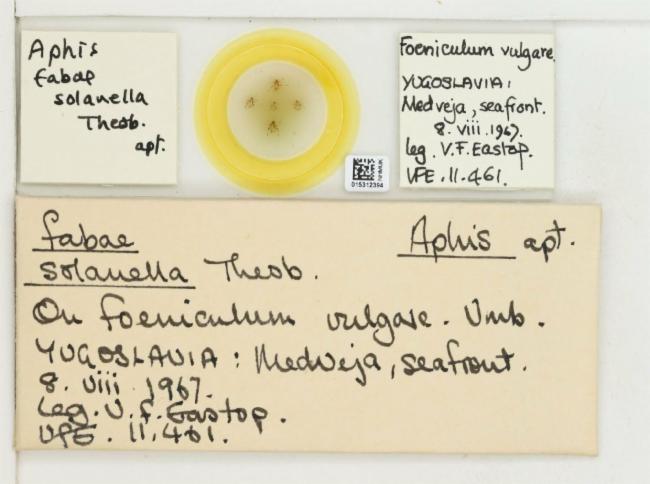 Aphis
fabae
solanella
Theob.
apt.
NHMUK
015312394
Foeniculum vulgare.
YUGOSLAVIA:
Medveja, seafront.
8. viii. 1967.
leg. V.F. Eastop.
VFE. 11.461.
fabae Aphis apt.
solanella Theob.
On foeniculum vulgare. Umb.
YUGOSLAVIA: Medveja, seafront.
8. viii 1967.
Leg. V. F. Eastop.
VFE. 11.461.